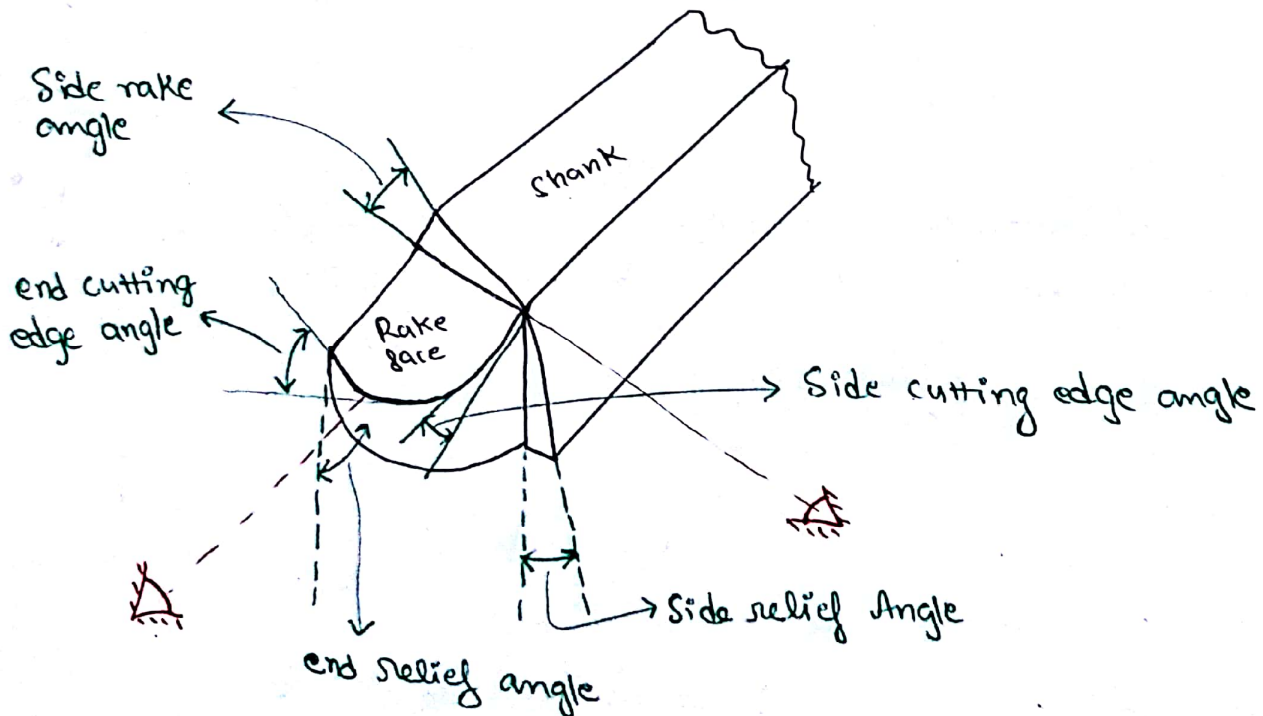 Side rake
angle
Shank
end cutting
edge angle
Rake
face
Side cutting edge angle
Side relief Angle
end relief angle